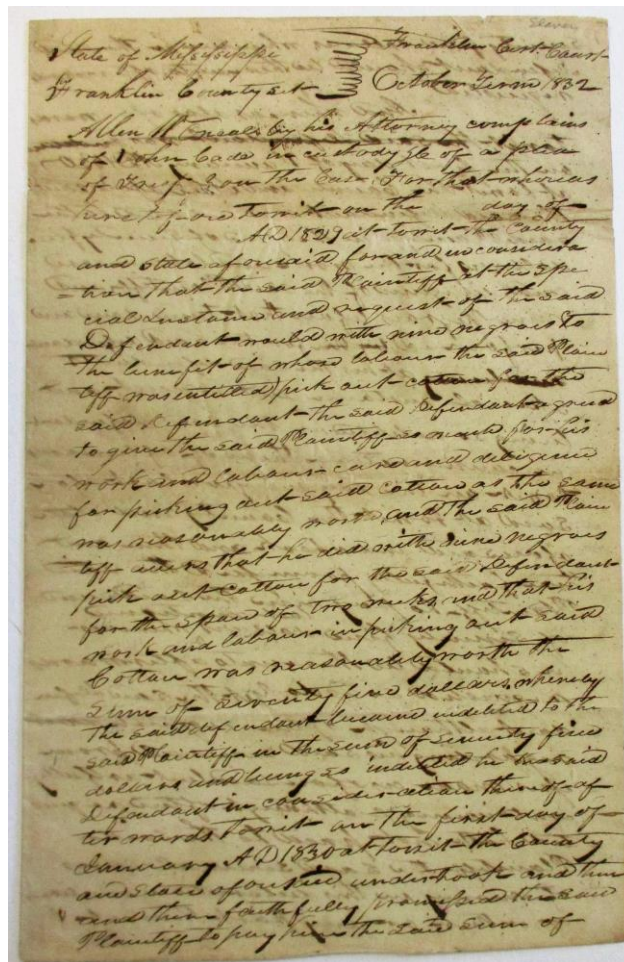 State of Mississippi Franklin Circt. Court
Franklin County Sct October Term 1832
Allen by his Attorney complains
of John Cade in custody &c of a plea
of Tresp. on the Case. For that whereas
heretofore towit on the day of
AD 1829 at towit the County
and State aforesaid for and in considera
tion that the said Plaintiff at the spe
cial instance and request of the said
Defendant would with nine negroes to
the benefit of whose labour the said Plain
tiff was entitled pick out cotton for the
said Defendant the said Defendant agreed
to give the said Plaintiff so much for his
work and labour care and diligence
for picking out said cotton as the same
was reasonably worth, and the said Plain
tiff avers that he did with nine negroes
pick out cotton for the said Defendant
for the span of two weeks, and that his
work and labour in picking out said
Cotton was reasonably worth the
sum of Seventy five dollars, whereby
the said defendant became indebted to the
said Plaintiff in the sum of Seventy five
dollars, and being so indebted he the said
Defendant in consideration thereof af
ter wards towit on the first day of
January AD 1830 at towit the County
and State aforesaid undertook and then
and there faithfully promised the said
Plaintiff to pay him the said sum of